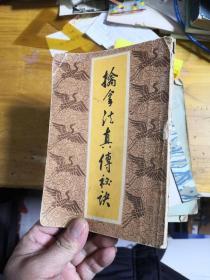 擒拿法真傳秘訣